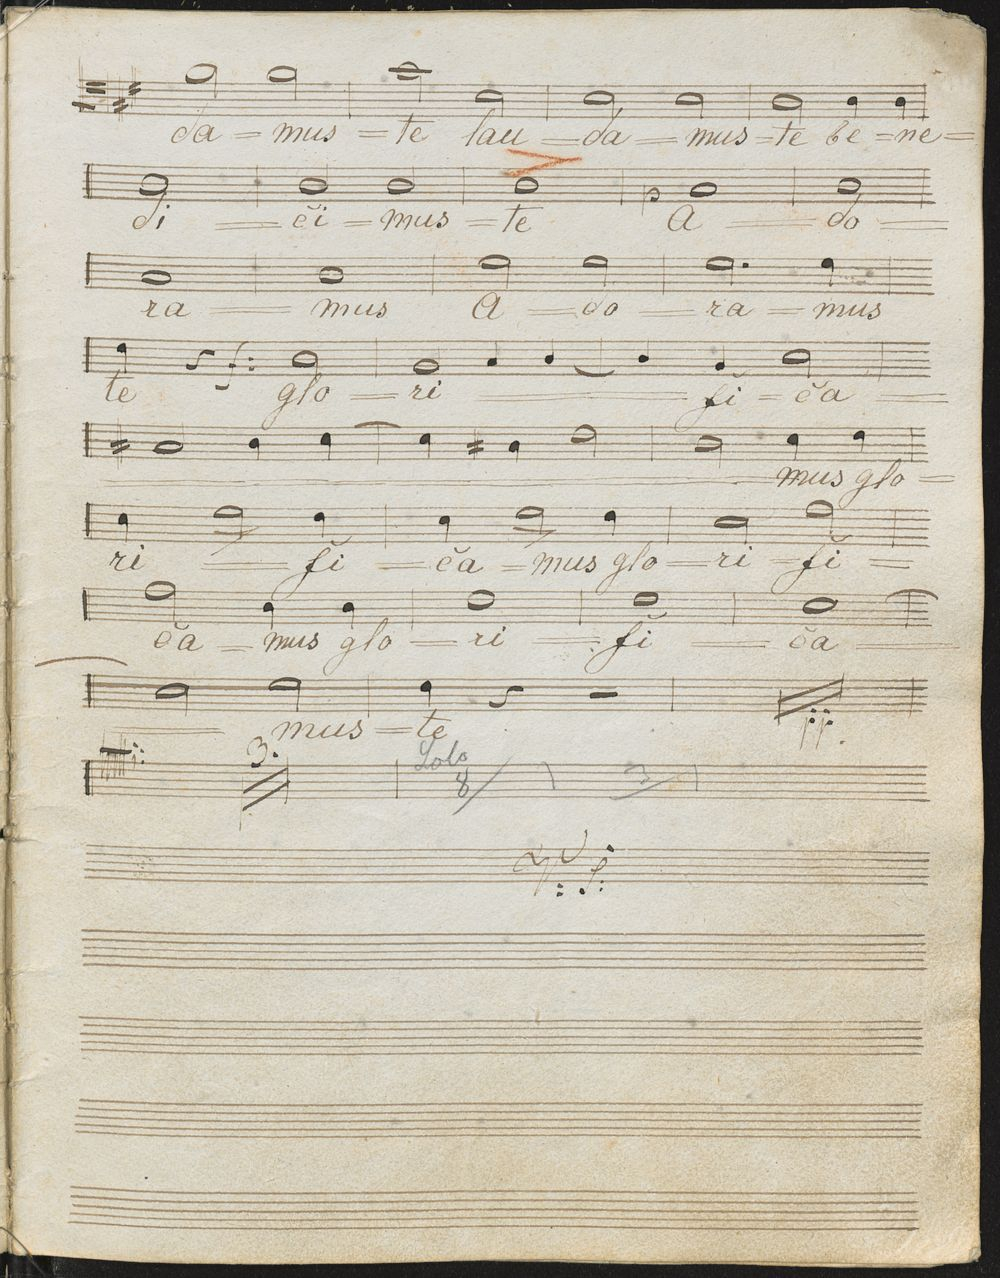 da = mus = te lau = da = mus = te be = ne =
di = c̆i = mus = te
p
A = do =
ra = mus A = do = ra = mus
f:
te glo = ri = fi = c̆a =
= mus glo =
ri = fi = c̆a = mus glo = ri = fi =
c̆a = mus glo = ri = fi = c̆a =
= mus = te
pp.
3. Solo
8 3